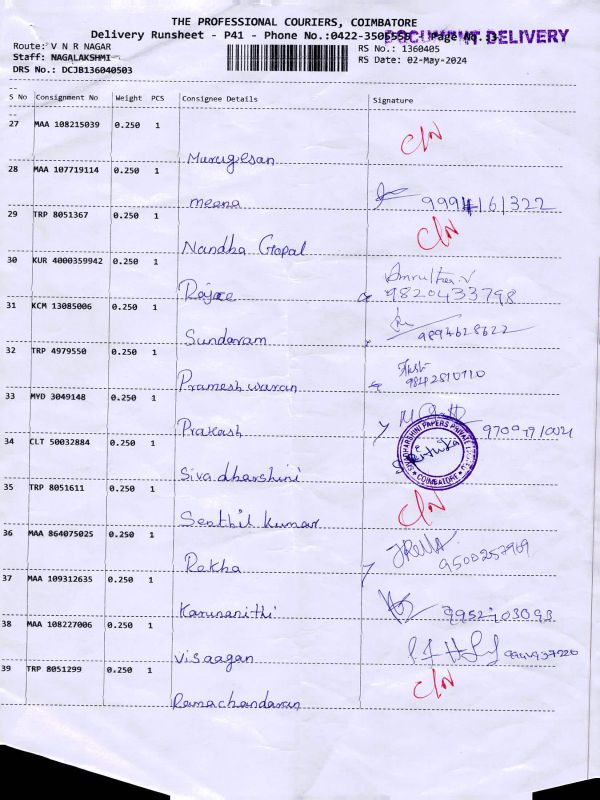 THE PROFESSIONAL COURIERS, COIMBATORE
Delivery Runsheet - P41 - Phone No.:0422-3505550 - Page No.
DOCUMENT DELIVERY
Route: V N R NAGAR RS No.: 1360405
Staff: NAGALAKSHMI RS Date: 02-May-2024
DRS No.: DCJB136040503
S No Consignment No Weight PCS Consignee Details Signature
27 MAA 108215039 0.250 1 C/N
Murugesan
28 MAA 107719114 0.250 1
Meena 9994161322
29 TRP 8051367 0.250 1 C/N
Nandha Gopal
30 KUR 4000359942 0.250 1 Amrutha.V
Rajee 9820433798
31 KCM 13085006 0.250 1
Sundaram 9894628622
32 TRP 4979550 0.250 1
Prameshwaran
33 MYD 3049148 0.250 1
Prakash
34 CLT 50032884 0.250 1
Sivadharshini
COIMBATORE
35 TRP 8051611 0.250 1 C/N
Senthil Kumar
36 MAA 864075025 0.250 1
Rekha 9500257969
37 MAA 109312635 0.250 1
Karunanithi 9952703093
38 MAA 108227006 0.250 1
Visaagan
39 TRP 8051299 0.250 1 C/N
Ramachandaran